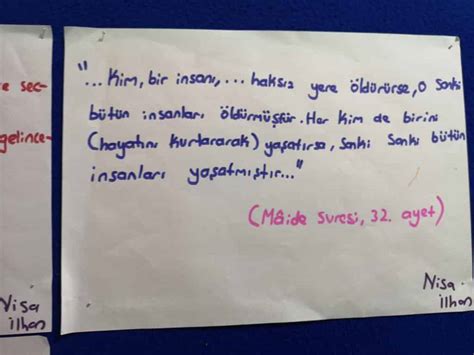 e sec-
gelince-
Nisa
ilhan
"... Kim, bir insanı, ... haksız yere öldürürse, O sanki
bütün insanları öldürmüştür. Her kim de birini
(hayatını kurtararak) yaşatırsa, sanki sanki bütün
insanları yaşatmıştır..."
(Mâide suresi, 32. ayet)
Nisa
ilhan